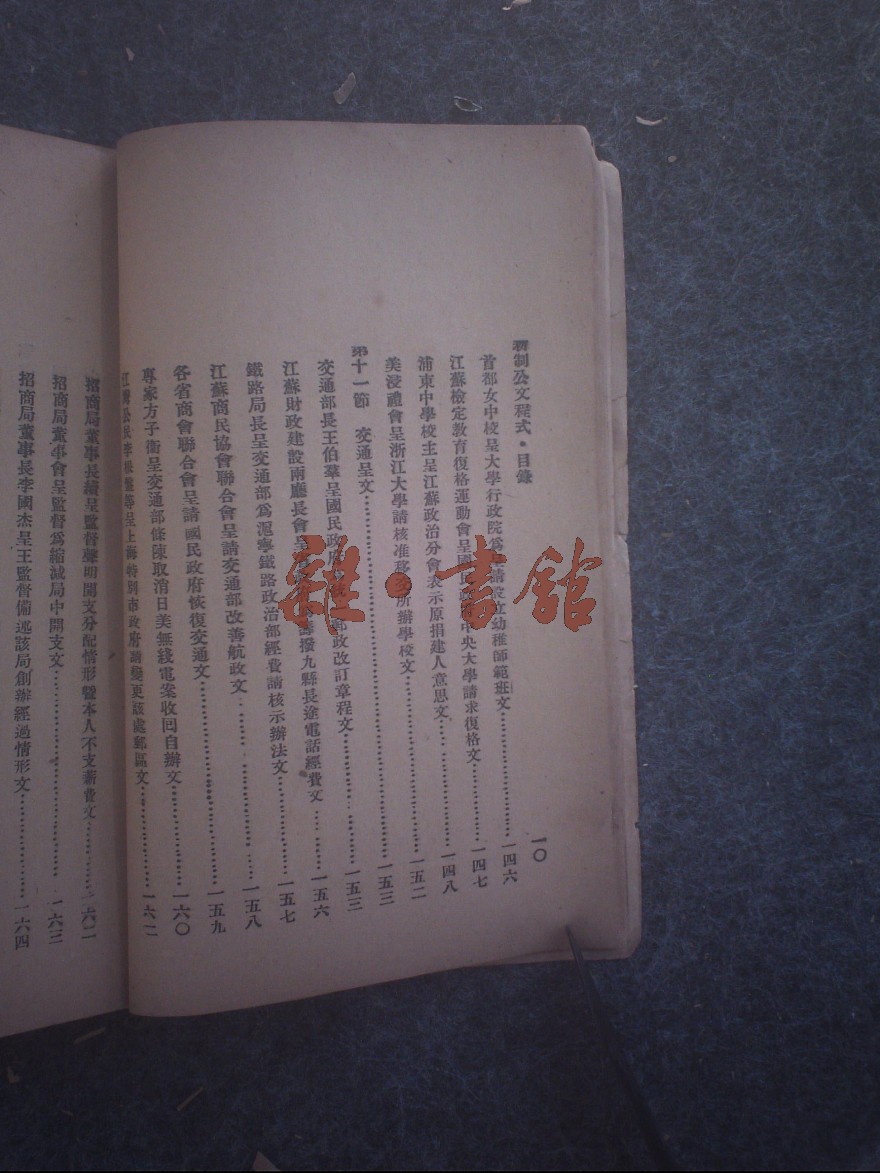 新制公文程式·目錄
一〇
首都女中校呈大學行政院爲請設立幼稚師範班文…………一四六
江蘇檢定教育復格運動會呈國民政府中央大學請求復格文…………一四七
浦東中學校主呈江蘇政治分會表示原捐建人意思文…………一四八
美浸禮會呈浙江大學請核准移交所辦學校文…………一五二
第十一節 交通呈文…………一五三
交通部長王伯羣呈國民政府郵政改訂章程文…………一五三
江蘇財政建設兩廳長會呈籌撥九縣長途電話經費文…………一五六
鐵路局長呈交通部爲滬寧鐵路政治部經費請核示辦法文…………一五七
江蘇商民協會聯合會呈請交通部改善航政文…………一五八
各省商會聯合會呈請國民政府恢復交通文…………一五九
專家方子衞呈交通部條陳取消日美無綫電案收回自辦文…………一六〇
江灣公民李等呈上海特別市政府請變更該處郵區文…………一六二
招商局董事長續呈監督聲明開支分配情形暨本人不支薪費文…………一六二
招商局董事會呈監督爲縮減局中開支文…………一六三
招商局董事長李國杰呈王監督備述該局創辦經過情形文…………一六四
雜·書館